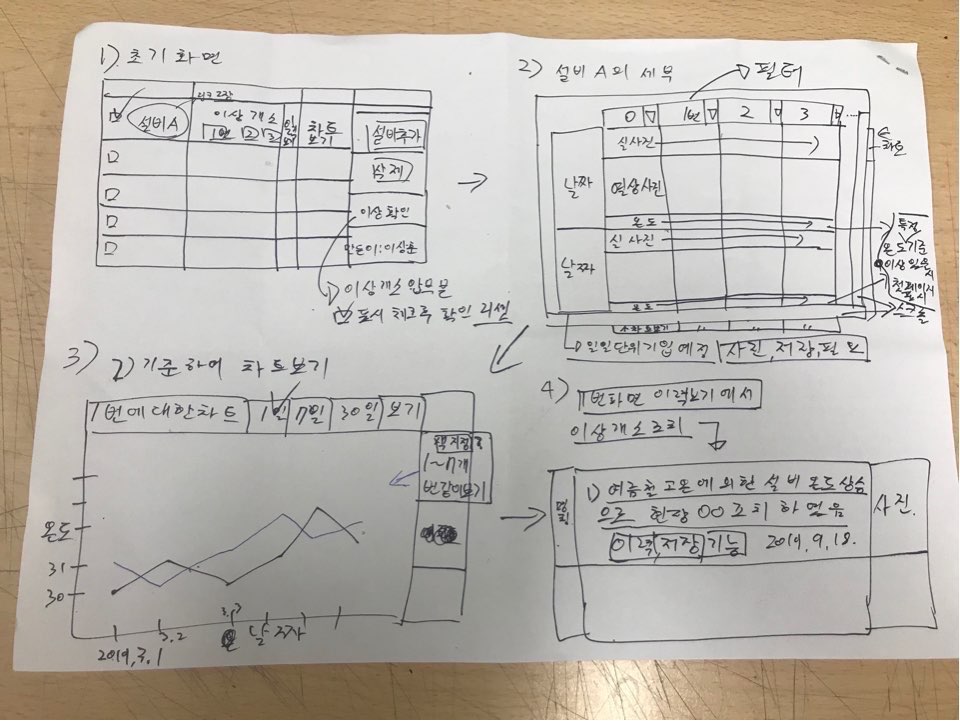 1) 초기화면
설비A
이상개소
1번
차트
보기
설비추가
삭제
이상확인
만든이:이상훈
1) 이상개소 압무분
표시 체크후 확인 리셋
2) 설비 A의 세부
필터
0 1번 2 3 ....
날짜
실사진
열상사진
온도
날짜
실사진
온도
특정
온도기준
이상있을시
첫페이지
표시
스크롤
일일단위기입예정 사진,저장,필요
3)
2) 기준하여 차트보기
1번에대한차트 1일 7일 30일 보기
책지정
1~n개
번갈아보기
온도
31
30
2019.3.1
3.2
3.3
날짜
4)
1번화면 이력보기에서
이상개소조치
1) 여름철 고온에 의한 설비 온도상승
으로 현장 OO조치 하였음
이력,저장기능 2019.9.18.
사진.